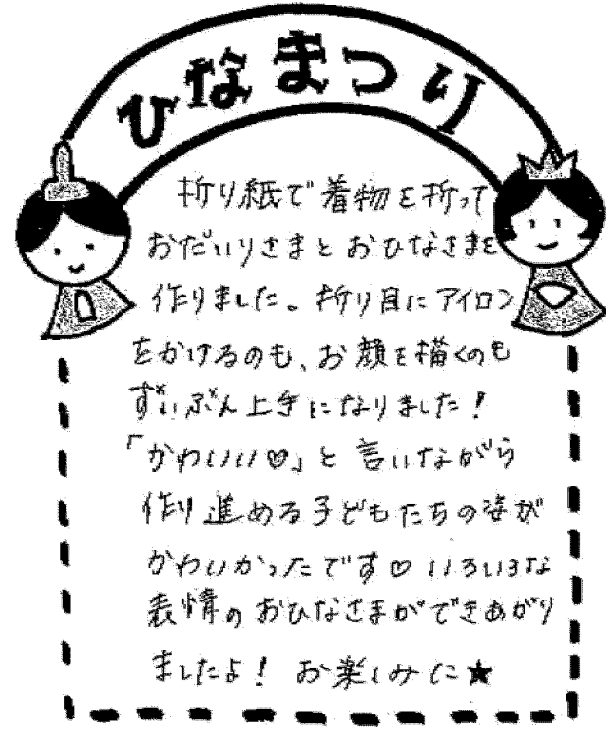 ひなまつり
折り紙で着物を折って
おだいりさまとおひなさまを
作りました。折り目にアイロン
をかけるのも、お顔を描くのも
ずいぶん上手になりました!
「かわいい♡」と言いながら
作り進める子どもたちの姿が
かわいかったです♡いろいろな
表情のおひなさまができあがり
ましたよ!お楽しみに★